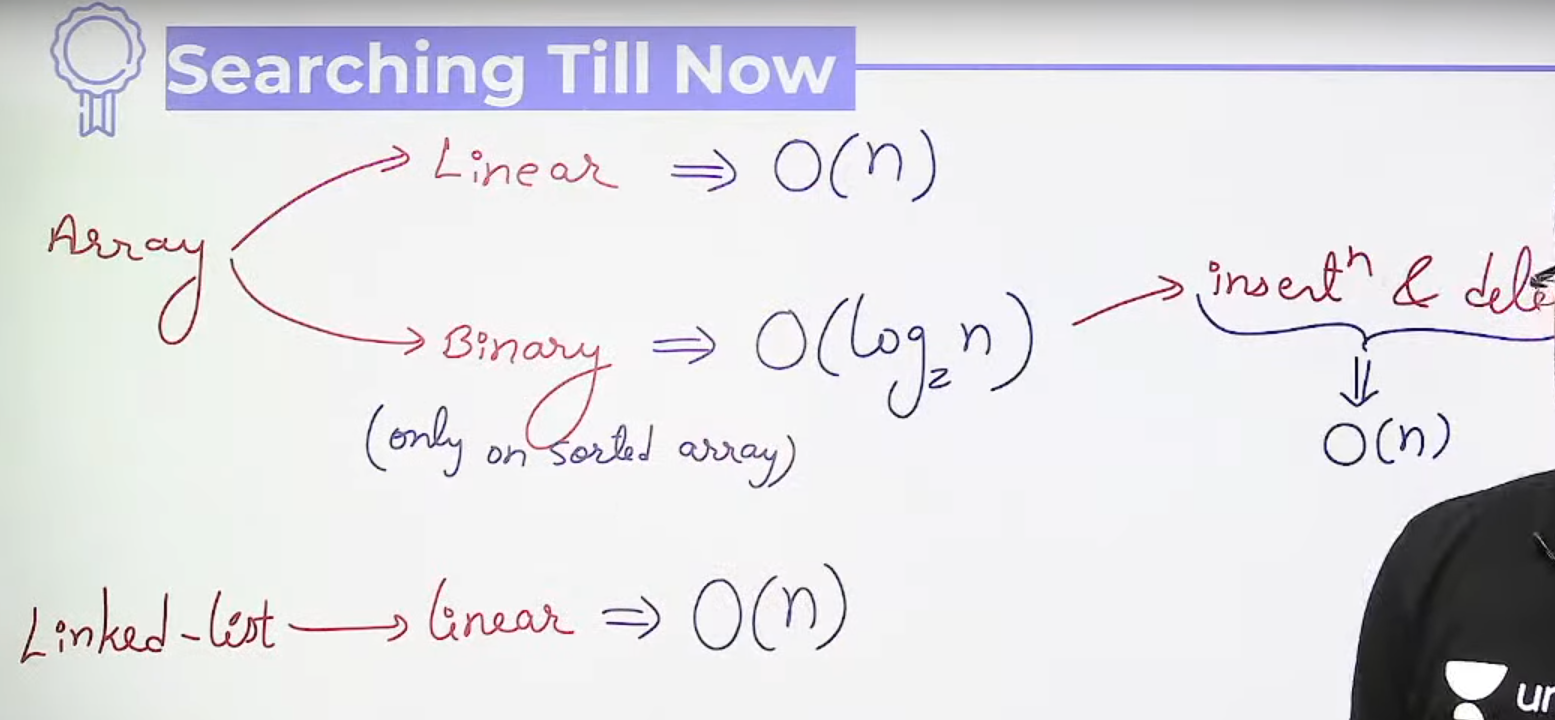 Searching Till Now
Array → Linear ⇒ O(n)
→ Binary ⇒ O(log₂n) → insertⁿ & dele
(only on sorted array)
⇓
O(n)
Linked-list → linear ⇒ O(n)
un